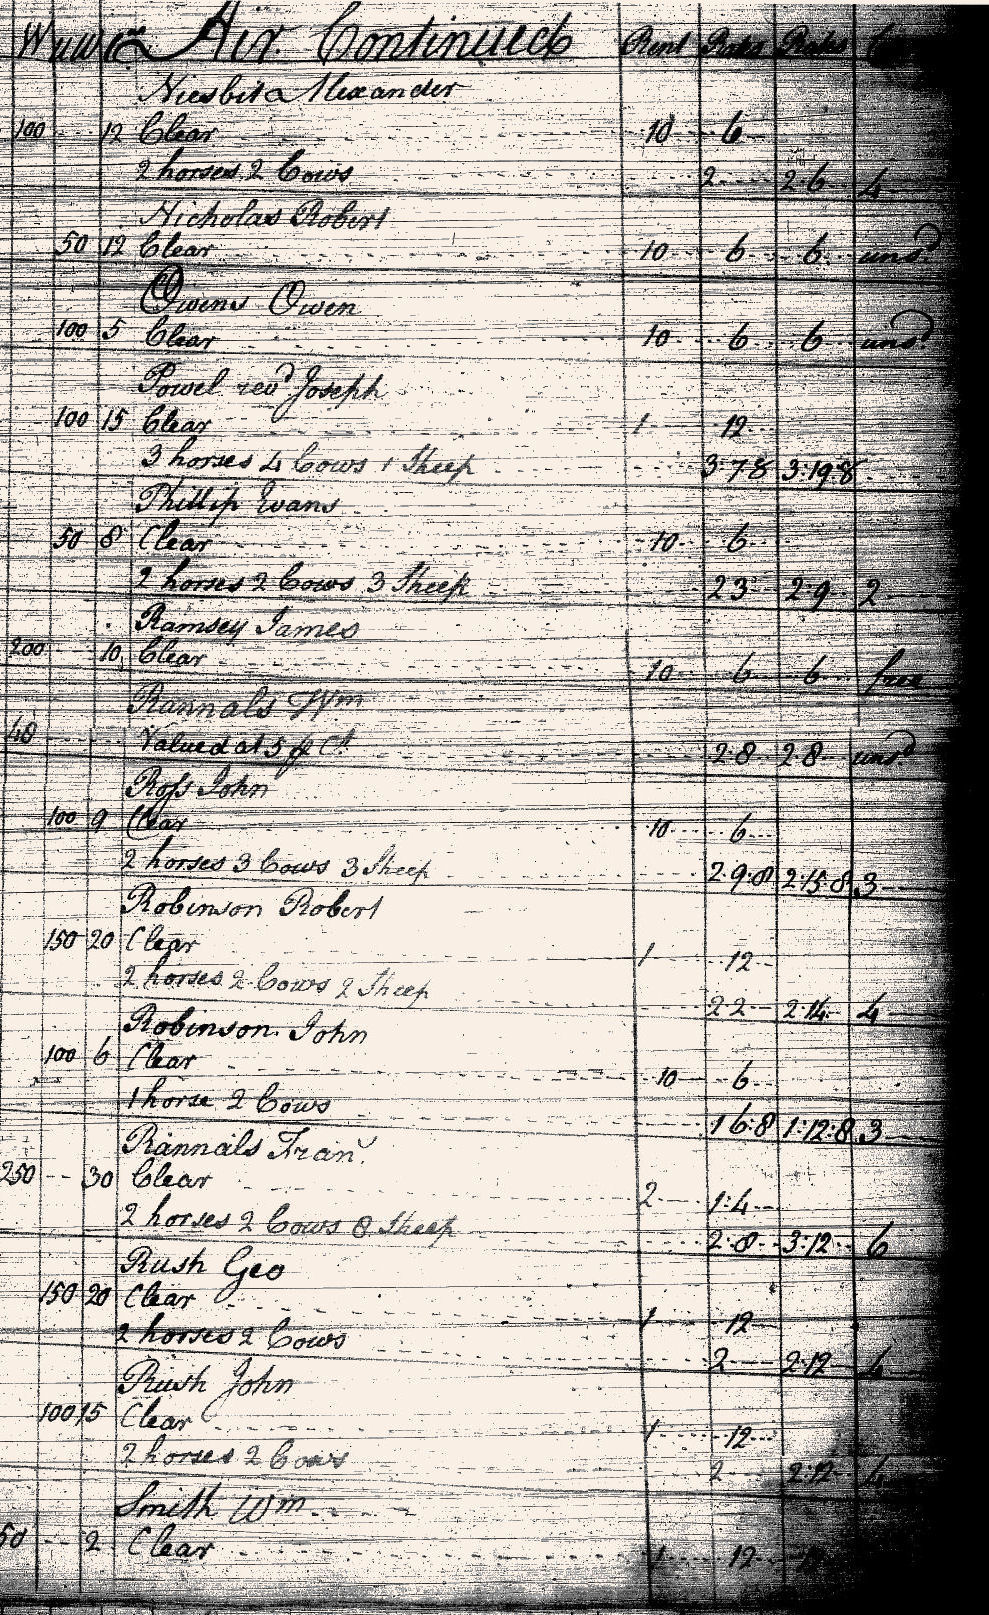 Air Continued Rent Rates Rates
Niesbit Alexander
100 12 Clear 10 6
2 horses 2 Cows 2 2.6 4
Nicholas Robert
50 12 Clear 10 6 6 unsd
Owens Owen
100 5 Clear 10 6 6 unsd
Powel revd Joseph
100 15 Clear 1 12
3 horses 4 Cows 1 Sheep 3.7.8 3:19.8
Phillip Evans
50 8 Clear 10 6
2 horses 2 Cows 3 Sheep 2 3 2.9 2
Ramsey James
200 10 Clear 10 6 6 free
Rannals Wm
48 Valued at 5 2.8 2.8 unsd
Ross John
100 9 Clear 10 6
2 horses 3 Cows 3 Sheep 2.9.8 2:15.8 3
Robinson Robert
150 20 Clear 1 12
2 horses 2 Cows 2 Sheep 2 2 2:14 4
Robinson John
100 6 Clear 10 6
1 horse 2 Cows 1 6:8 1:12:8 3
Rannals Fran
250 30 Clear 2 1:4
2 horses 2 Cows 8 Sheep 2.8 3:12 6
Rush Geo
150 20 Clear 1 12
2 horses 2 Cows 2 2:12 4
Rush John
100 15 Clear 1 12
2 horses 2 Cows 2 2:12 4
Smith Wm
50 2 Clear 1 12